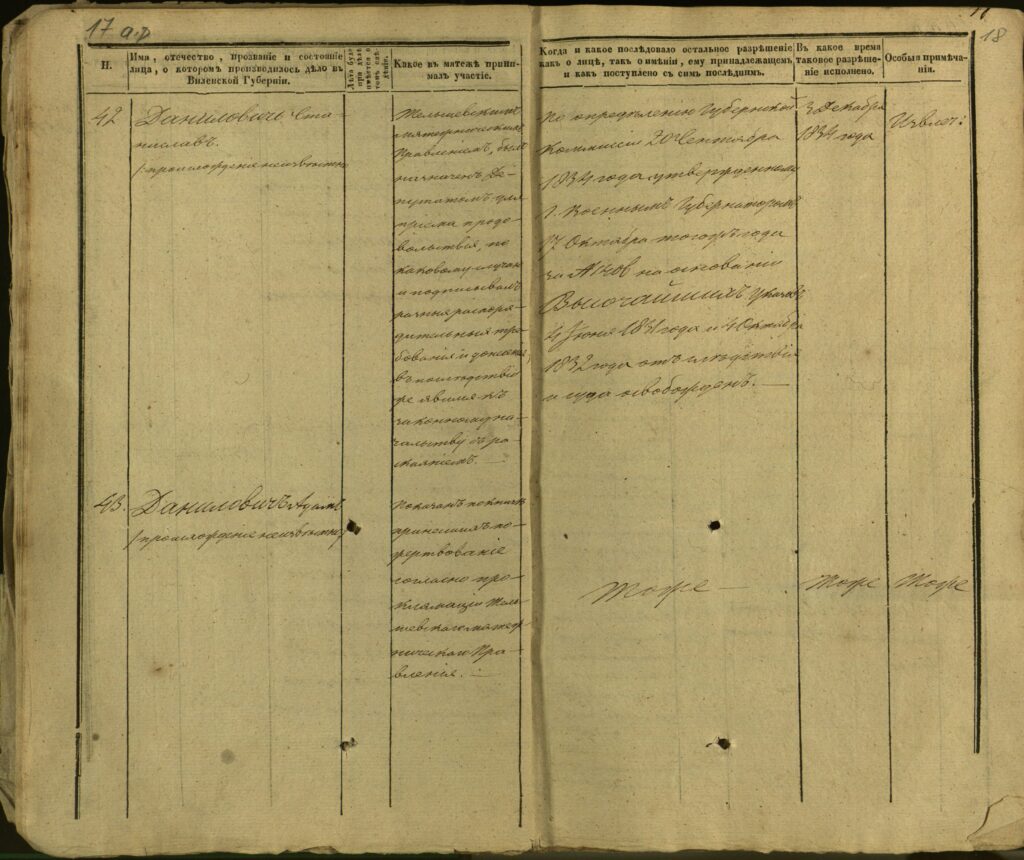 17 а.р
18
Н.
Имя, отечество, прозваніе и состояніе
лица, о которомъ производилось дѣло въ
Виленской Губерніи.
Какое въ мятежѣ прини-
малъ участіе.
Когда и какое послѣдовало остальное разрѣшеніе
какъ о лицѣ, такъ о имѣніи, ему принадлежащемъ
и как поступлено съ симъ послѣднимъ.
Въ какое время
таковое разрѣше-
ніе исполнено.
Особыя примѣча-
нія.
42
Даниловичь Ста-
ниславъ.
/:происхожденіе неизвѣстно
Тельшевскимъ
мятежническимъ
Правленіемъ, былъ
назначенъ Де-
путатомъ для
пріема продо-
вольствія, по
каковому случаю
и подписывалъ
разныя распоря-
дительныя тре-
бованія и донесенія,
въ послѣдствіи
же явился къ
законному на-
чальству съ ра-
скаяніемъ.
по опредѣленію Губернской
Коммисіи 20 Сентября
1834 года утвержденному
Г. Военнымъ Губернаторомъ
17 Октября того жъ года
за № на основаніи
Высочайшихъ Указовъ
4 Іюня 1831 года и 4 Октября
1832 года отъ слѣдствія
и суда освобожденъ.
3 Декабря
1834 года
Извлеч:
43.
Даниловичъ Адамъ
/:происхожденіе неизвѣстно
Показанъ по книгѣ
принесшихъ по-
жертвованіе
согласно про-
кламаціи Тель-
шевскаго мятеж-
ническаго Пра-
вленія.
Тоже
Тоже
Тоже